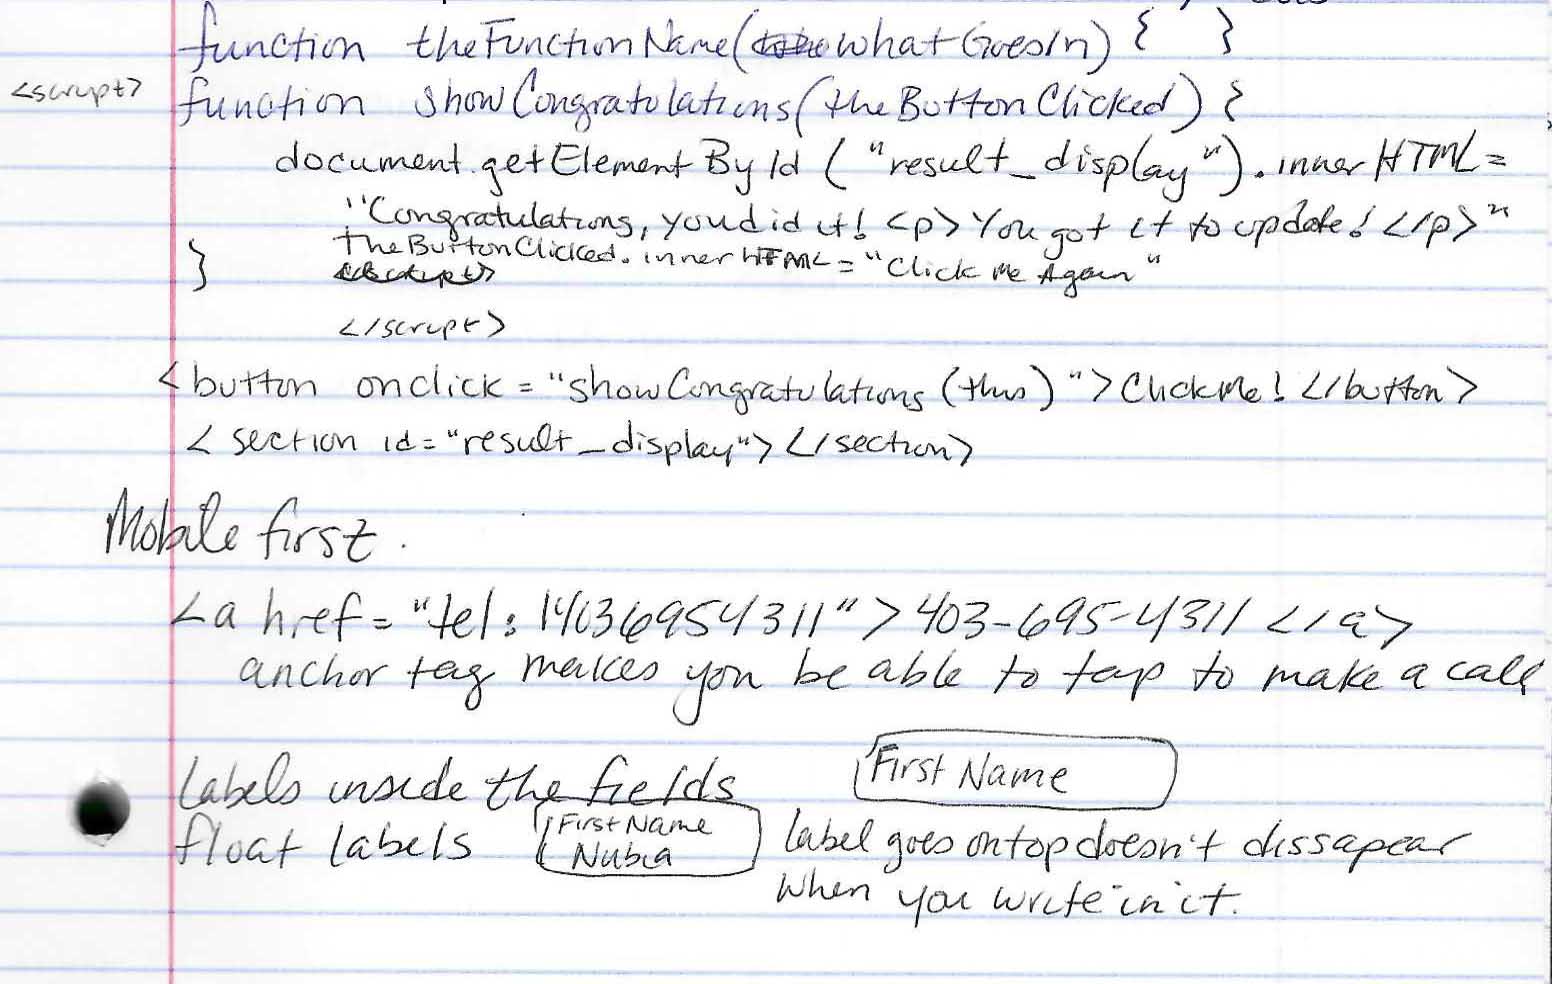 function theFunctionName(whatGoesIn) { }
<script> function showCongratulations(theButtonClicked) {
document.getElementById ("result_display").innerHTML =
"Congratulations, you did it! <p> You got it to update! </p>"
theButtonClicked.innerHTML = "Click Me Again"
}
</script>
<button onclick = "showCongratulations (this)"> Click Me! </button>
< section id="result_display"> </section>
Mobile first.
<a href = "tel:14036954311" > 403-695-4311 </a>
anchor tag makes you be able to tap to make a call
Labels inside the fields First Name
float labels First Name
Nubia
label goes on top doesn't dissapear
when you write in it.